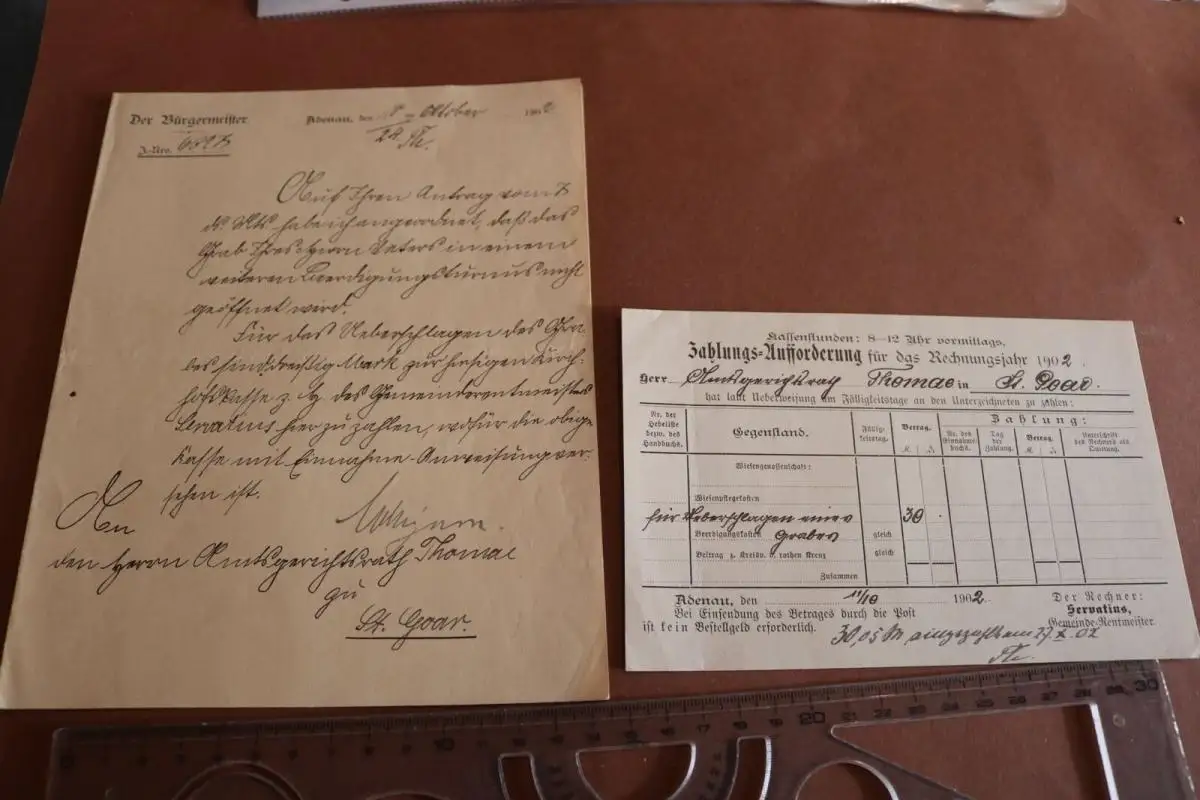 Der Bürgermeister
Adenau, den 8 ten Oktober 1902
J.-Nro.
24. Th.
Auf Ihren Antrag vom 7
ds. Mts. habe ich angeordnet, daß das
Grab Ihres Herrn Vaters in einem
weiteren Beerdigungsturnus nicht
geöffnet wird.
Für das Ueberschlagen des Gra-
bes sind dreißig Mark zur hiesigen Kirch-
hofskasse z. H. des Gemeinderentmeisters
Servatius hier zu zahlen, wofür die obige
Kasse mit Einnahme-Anweisung ver-
sehen ist.
An
den Herrn Amtsgerichtsrath Thomae
zu
St. Goar.
Kassenstunden: 8—12 Uhr vormittags.
Zahlungs-Aufforderung für das Rechnungsjahr 1902.
Herr Amtsgerichtsrath Thomae in St. Goar.
hat laut Ueberweisung am Fälligkeitstage an den Unterzeichneten zu zahlen:
Nr. der Hebeliste bezw. des Handbuchs.
Gegenstand.
Fälligkeitstag.
Betrag.
M. J.
Zahlung:
Nr. des Einnahmebuchs.
Tag der Zahlung.
Betrag.
M. J.
Unterschrift des Rechners als Quittung.
Wiesengenossenschaft:
Wiesenpflegekosten
für Ueberschlagen eines 30 .
Beerdigungskosten Grabes gleich
Beitrag z. Kreisv. v. rothen Kreuz gleich
Zusammen
Adenau, den 11/10 1902.
Der Rechner:
Bei Einsendung des Betrages durch die Post
Servatius,
ist kein Bestellgeld erforderlich.
Gemeinde-Rentmeister.
30,05 M eingezahlt am 27. X. 02
Th.